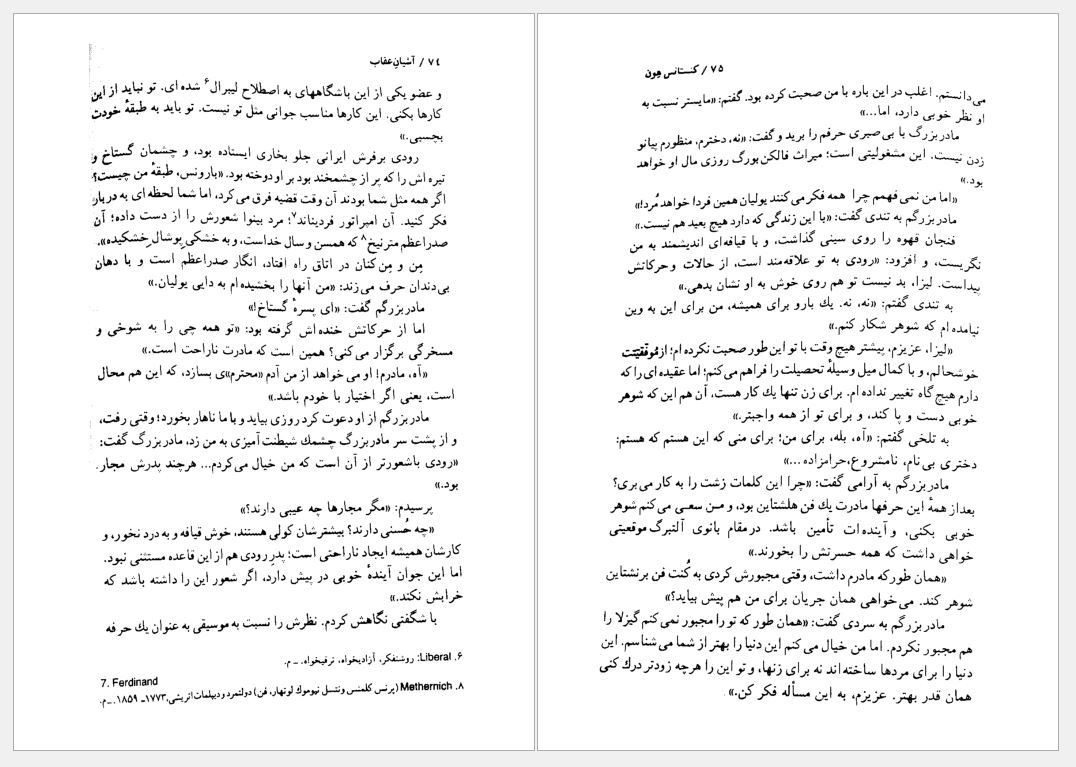 ۷۴ / آشیان عقاب
و عضو یکی از این باشگاههای به اصطلاح لیبرال۶ شده ای. تو نباید از این
کارها بکنی. این کارها مناسب جوانی مثل تو نیست. تو باید به طبقهٔ خودت
بچسبی.»
رودی برفرش ایرانی جلو بخاری ایستاده بود، و چشمان گستاخ و
تیره اش را که پر از چشمخند بود بر او دوخته بود. «بارونس، طبقهٔ من چیست؟
اگر همه مثل شما بودند آن وقت قضیه فرق می کرد، اما شما لحظه ای به دربار
فکر کنید. آن امپراتور فردیناند۷؛ مرد بینوا شعورش را از دست داده؛ آن
صدراعظم مترنیخ۸ که همسن و سال خداست، و به خشکی پوشالِ خشکیده».
مِن و مِن کنان در اتاق راه افتاد، انگار صدراعظم است و با دهان
بی دندان حرف می زند: «من آنها را بخشیده ام به دایی یولیان.»
مادربزرگم گفت: «ای پسرهٔ گستاخ!»
اما از حرکاتش خنده اش گرفته بود: «تو همه چی را به شوخی و
مسخرگی برگزار می کنی؟ همین است که مادرت ناراحت است.»
«آه، مادرم! او می خواهد از من آدم «محترم»ی بسازد، که این هم محال
است، یعنی اگر اختیار با خودم باشد.»
مادربزرگم از او دعوت کرد روزی بیاید و با ما ناهار بخورد؛ وقتی رفت،
و از پشت سر مادربزرگ چشمك شیطنت آمیزی به من زد، مادربزرگ گفت:
«رودی باشعورتر از آن است که من خیال می کردم... هرچند پدرش مجار
بود.»
پرسیدم: «مگر مجارها چه عیبی دارند؟»
«چه حُسنی دارند؟ بیشترشان کولی هستند، خوش قیافه و به درد نخور، و
کارشان همیشه ایجاد ناراحتی است؛ پدرِ رودی هم از این قاعده مستثنی نبود.
اما این جوان آیندهٔ خوبی در پیش دارد، اگر شعور این را داشته باشد که
خرابش نکند.»
با شگفتی نگاهش کردم. نظرش را نسبت به موسیقی به عنوان یك حرفه
۶. Liberal: روشنفکر، آزادیخواه، ترقیخواه. ــ م.
7. Ferdinand
۸. Methernich (پرنس کلمنس ونتسل نپوموك لوتهار، فن) دولتمرد و دیپلمات اتریشی، ۱۷۷۳ـ ۱۸۵۹. ــ م.
۷۵ / کنستانس هون
می دانستم. اغلب در این باره با من صحبت کرده بود. گفتم: «مایستر نسبت به
او نظر خوبی دارد، اما...»
مادربزرگ با بی صبری حرفم را برید و گفت: «نه، دخترم، منظورم پیانو
زدن نیست. این مشغولیتی است؛ میراث فالکن بورگ روزی مال او خواهد
بود.»
«اما من نمی فهمم چرا همه فکر می کنند یولیان همین فردا خواهد مُرد!»
مادربزرگم به تندی گفت: «با این زندگی که دارد هیچ بعید هم نیست.»
فنجان قهوه را روی سینی گذاشت، و با قیافه ای اندیشمند به من
نگریست، و افزود: «رودی به تو علاقه مند است، از حالات و حرکاتش
پیداست. لیزا، بد نیست تو هم روی خوش به او نشان بدهی.»
به تندی گفتم: «نه، نه. یك بار و برای همیشه، من برای این به وین
نیامده ام که شوهر شکار کنم.»
«لیزا، عزیزم، پیشتر هیچ وقت با تو این طور صحبت نکرده ام؛ از موفقیتت
خوشحالم، و با کمال میل وسیلهٔ تحصیلت را فراهم می کنم؛ اما عقیده ای را که
دارم هیچ گاه تغییر نداده ام. برای زن تنها یك کار هست، آن هم این که شوهر
خوبی دست و پا کند، و برای تو از همه واجبتر.»
به تلخی گفتم: «آه، بله، برای من؛ برای منی که این هستم که هستم:
دختری بی نام، نامشروع، حرامزاده ...»
مادربزرگم به آرامی گفت: «چرا این کلمات زشت را به کار می بری؟
بعد از همهٔ این حرفها مادرت یك فن هلشتاین بود، و من سعی می کنم شوهر
خوبی بکنی، و آینده ات تأمین باشد. درمقام بانوی آلتبرگ موقعیتی
خواهی داشت که همه حسرتش را بخورند.»
«همان طور که مادرم داشت، وقتی مجبورش کردی به کُنت فن برنشتاین
شوهر کند. می خواهی همان جریان برای من هم پیش بیاید؟»
مادربزرگم به سردی گفت: «همان طور که تو را مجبور نمی کنم گیزلا را
هم مجبور نکردم. اما من خیال می کنم این دنیا را بهتر از شما می شناسم. این
دنیا را برای مردها ساخته اند نه برای زنها، و تو این را هرچه زودتر درك کنی
همان قدر بهتر. عزیزم، به این مسأله فکر کن.»